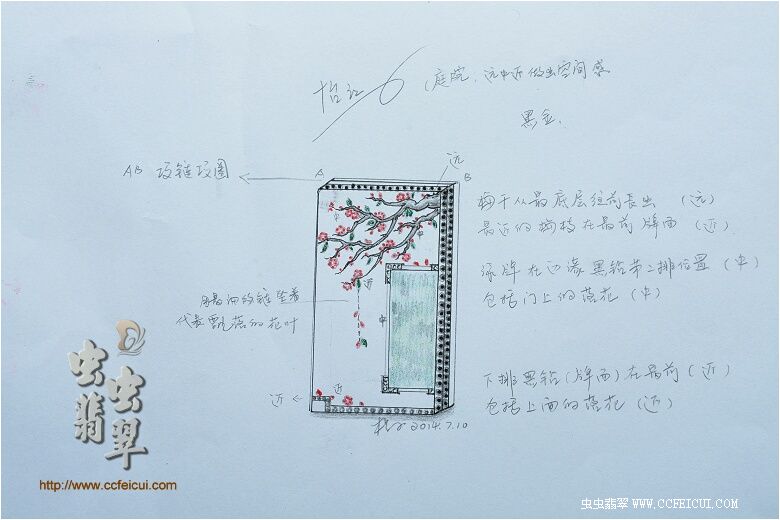 怡江 6 庭院、远中近做出空间感
黑金、
AB 项链项圈
A
远
B
梅干从最底层往前长出 (远)
最近的梅枝在最前牌面 (近)
中
中
绿牌在边缘黑钻第二排位置 (中)
包括门上的落花 (中)
近
用最细的链坠着
代表飘落的花叶
中
下排黑钻(牌面)在最前 (近)
包括上面的落花 (近)
近
近
2014.7.10
虫虫翡翠
http://www.ccfeicui.com
虫虫翡翠 WWW.CCFEICUI.COM